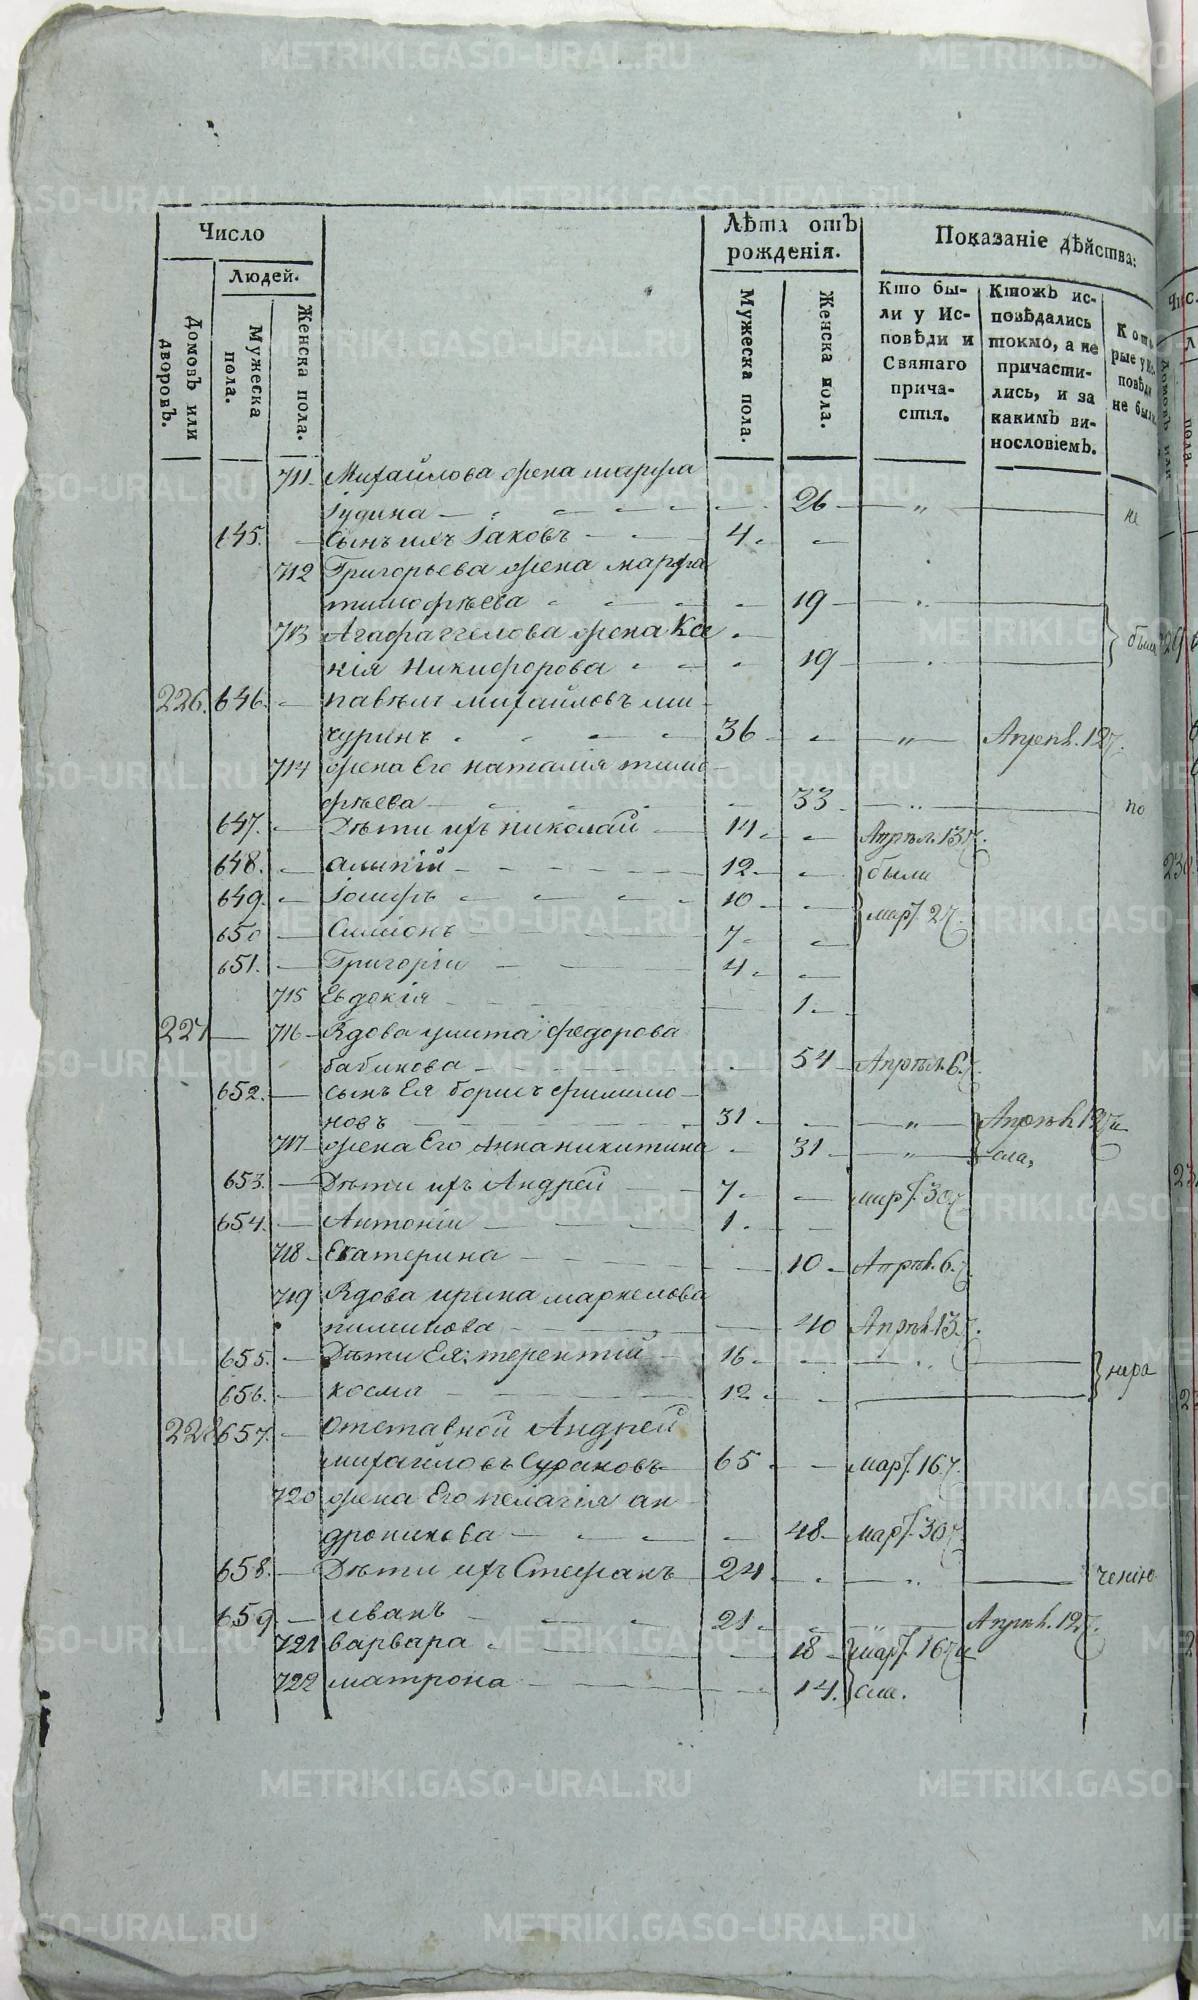 Число
Людей.
Домовъ или дворовъ.
Мужеска пола.
Женска пола.
Лѣта отъ рожденія.
Мужеска пола.
Женска пола.
Показаніе дѣйства:
Кто бы-
ли у Ис-
повѣди и
Святаго
прича-
стія.
Ктожъ ис-
повѣдались
токмо, а не
причасти-
лись, и за
какимъ ви-
нословіемъ.
Кото
рые у Ис-
повѣди
не были.
711 Михайлова жена марѳа
Іудина 26 не
645. Сынъ ихъ Іаковъ 4.
712 Григорьева жена марѳа
тимофѣева 19
713 Агафаггелова жена Ксе
нія Никифорова 19 были
226. 646. павелъ михайловъ ми-
чуринъ 36
714 жена Его наталія тимо-
фѣева 33 по
647. Дѣти ихъ николай 14 Апрѣл. 13
648. алипій 12 были
649. Іосифъ 10 март. 2
650 Симіонъ 7
651. Григорій 4
715 Евдокія 1
227 716 Вдова улита федорова
бабикова 54 Апрѣл. 6.
652. сынъ Ея борисъ филимо-
новъ 31
717 жена Его Анна никитина 31
653. Дѣти ихъ Андрей 7 март. 30
654. Антоній 1
718 Екатерина 10 Апрѣл. 6.
719 Вдова ирина маркелова
пиминова 40 Апрѣл. 13
655. Дѣти Ея: терентій 16 нера
656. косма 12
228 657. отставной Андрей
михайловъ Сурановъ 65 март. 16
720 жена Его пелагія ан
дроникова 48 март. 30
658. Дѣти ихъ Стефанъ 24 ченію
659. иванъ 21 Апрѣл. 12
721 варвара 18 март. 16
722 матрона 14.
METRIKI.GASO-URAL.RU